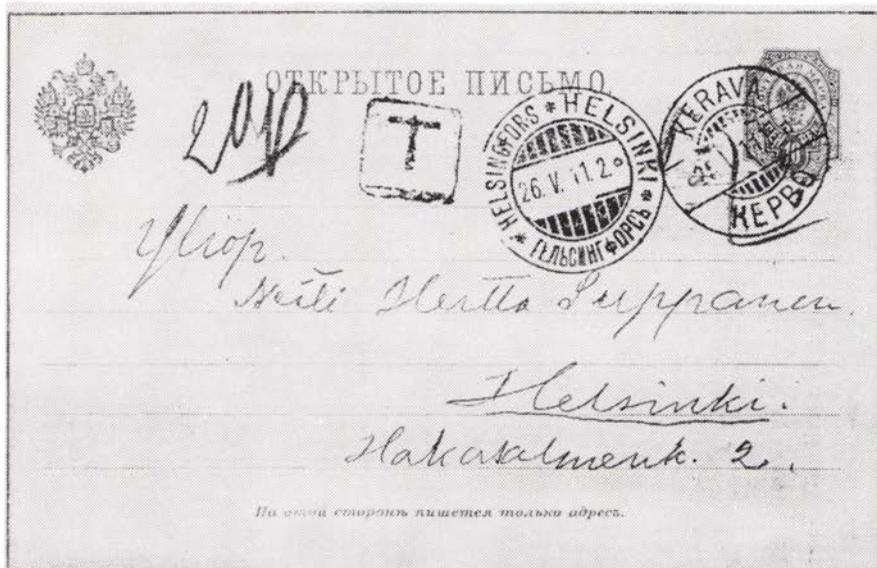 ОТКРЫТОЕ ПИСЬМО.
T
HELSINGFORS * HELSINKI * ГЕЛЬСИНГФОРСЪ *
26. V. 11. 2.
KERAVA
КЕРВО
Yliop.
Neiti Hertta Suppanen.
Helsinki.
Hakasalmenk. 2.
На этой сторонѣ пишется только адресъ.